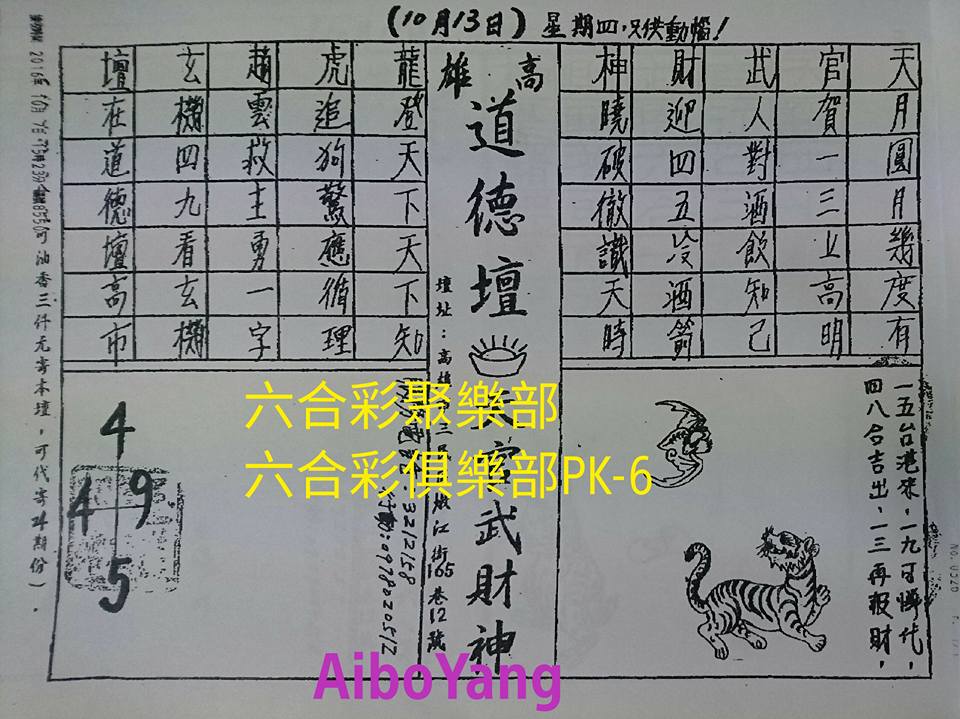 (10月13日) 星期四,只供動惱!
天官武財神
月賀人迎曉
圓一對四破
月三酒五徹
幾上飲冷識
度高知酒天
有明己箭時
高雄
道德壇
天官武財神
龍虎趙玄壇
登追雲機在
天狗救四道
下驚主九德
天應勇看壇
下循一玄高
知理字機市
一五台港來,一九可
四八合吉出,一三再報財,
壇址:高雄
江街165巷12號
3212158
行動:0978020512
4
4 9
5
2016年10月
油香三仟元寄本壇,可代寄24期份).
六合彩聚樂部
六合彩俱樂部PK-6
AiboYang